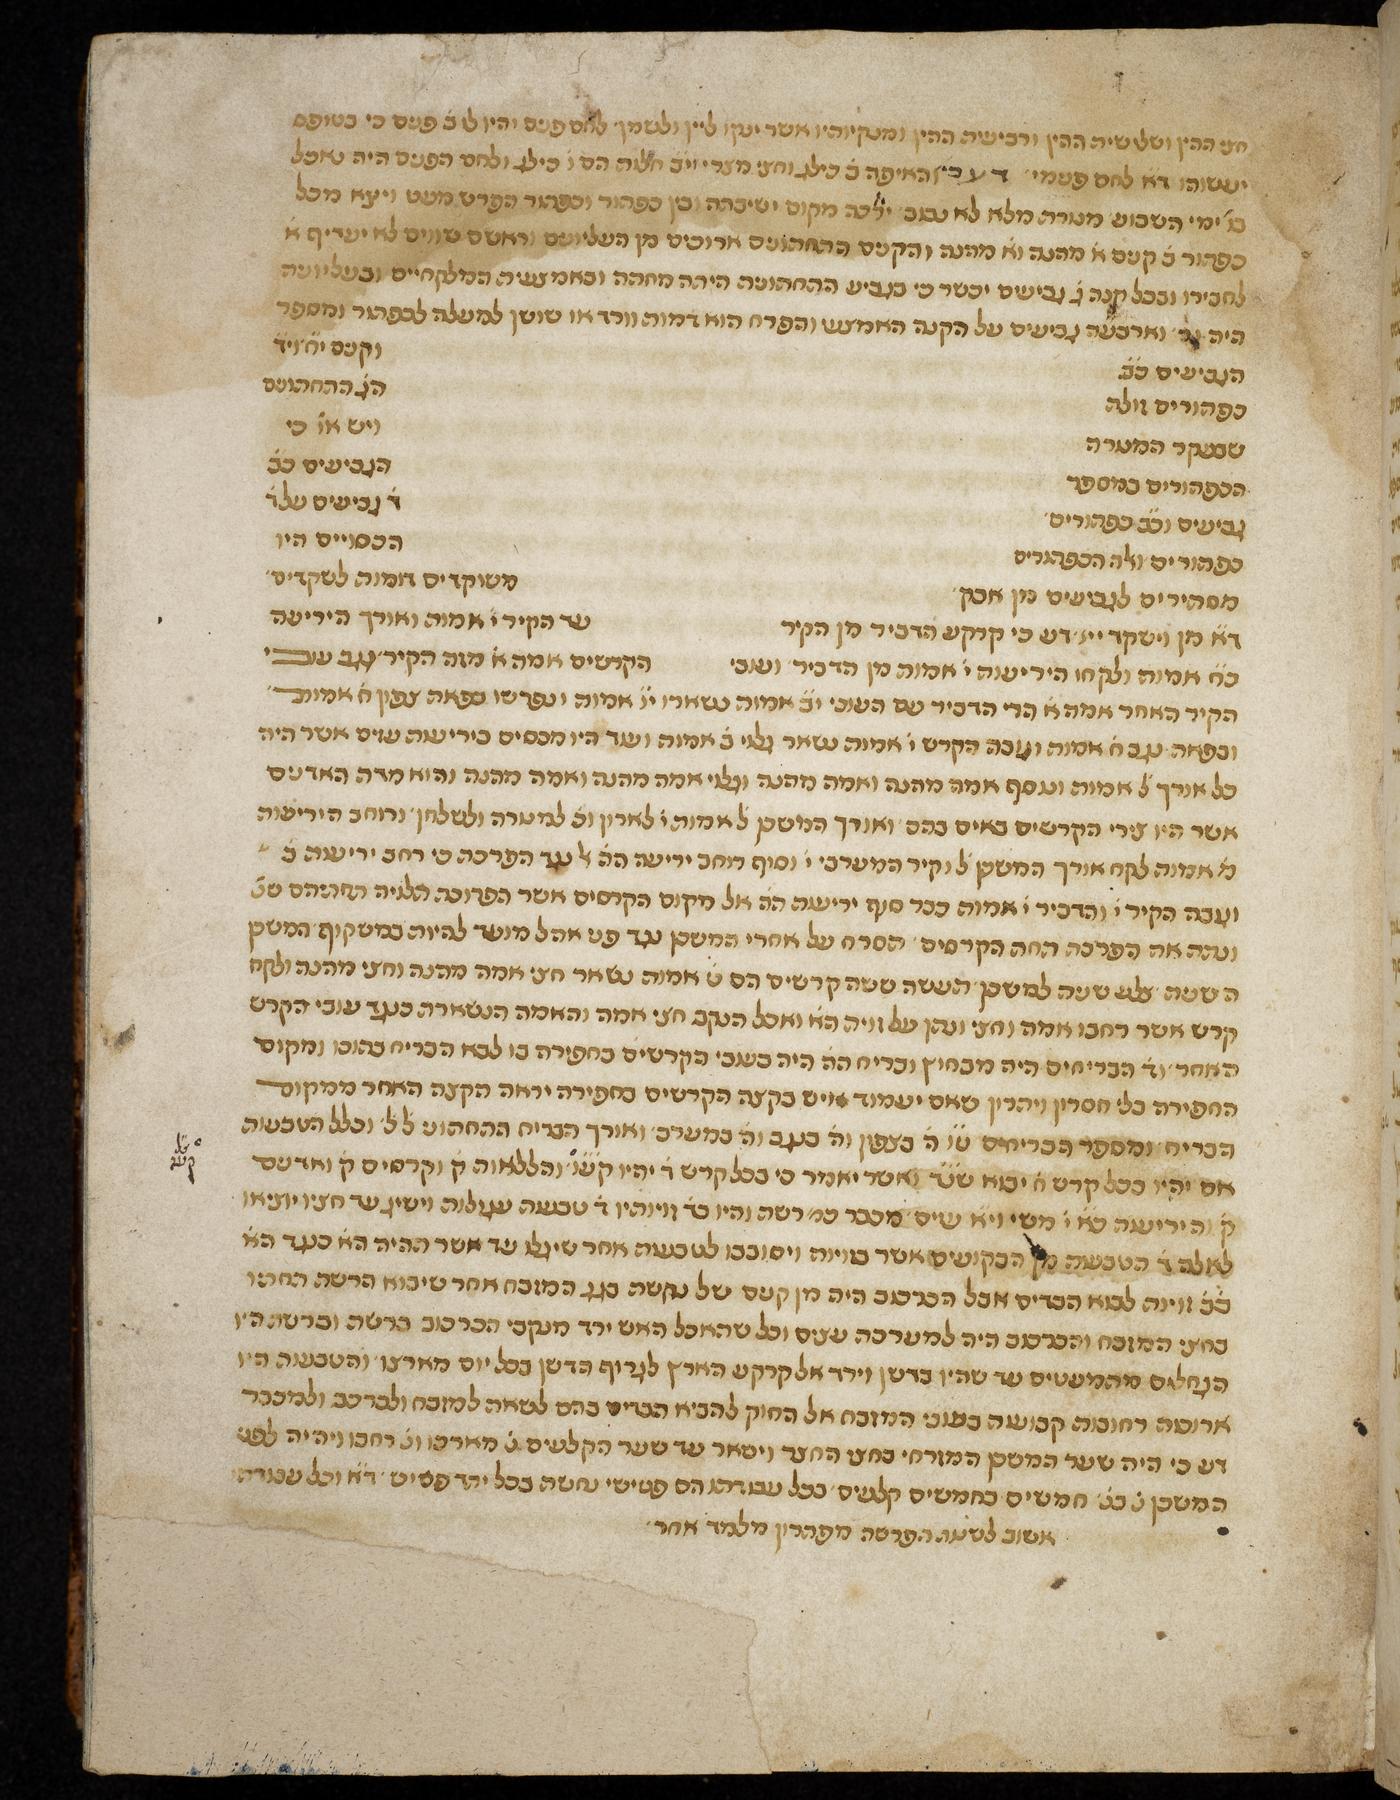 חצי ההין ושלישית ההין ורביעית ההין ומנקיותיו אשר ינקו ליין ולשמן לחם פנים והיו לו ב̇ פנים כי בטופס
יעשוהו ד̇א̇ לחם פנימי האיפה ב̇ כילג וחצי מצרי וי̇ב̇ חלות הם ו̇ כילג ולחם הפנים היה נאכל
ימי השבוע מנורה מלא לא נבוב ירכה מקום ישיבתה ובין כפתור וכפתור הפרש מעט ויצא מכל
כפתור ב̇ קנים א̇ מהנה וא̇ מהנה והקנים התחתונים ארוכים מן העליונים וראשם שווים לא יעדיף א̇
לחבירו ובכל קנה ג̇ גביעים יכשר כי בגביע התחתונה היתה מחתה ובאמצעית המלקחיים ובעליונה
היה נר וארבעה גביעים על הקנה האמצעי והפרח הוא דמות וורד או שושן למעלה לכפתור ומספר
הגביעים כ̇ב̇ וקנים
כפתורים זולה הג̇ התחתונים
שבעקר המנורה ויש או̇ כי
הכפתורים במספר הגביעים כ̇ב̇
גביעים וכ̇ב̇ כפתורים ד̇ גביעים על ד̇
כפתורים ולה הכפתורים הכסויים היו
מסתירים לגביעים מן אבק משוקדים דומות לשקדים
ד̇א̇ מן וישקד דע כי קרקע הדביר מן הקיר עד הקיר י̇ אמות ואורך היריעה
כ̇ח̇ אמות ולקחו היריעות י̇ אמות מן הדביר ועובי הקרשים אמה א̇ מזה הקיר נגב עובי
הקיר האחר אמה א̇ הרי הדביר עם העובי י̇ב̇ אמות נשארו אמות ונפרשו בפאת צפון ח̇ אמות
ובפאת נגב ח̇ אמות וגבה הקרש י̇ אמות נשאר גלוי ב̇ אמות ועוד היו מכסים ביריעות עזים אשר היה
כל אורך ל̇ אמות ונוסף אמה מהנה ואמה מהנה וגלוי אמה מהנה ואמה מהנה והוא מדת האדנים
אשר היו צירי הקרשים באים בהם ואורך המשכן ל̇ אמות י̇ לארון וכ̇ למנורה ולשלחן ורוחב היריעות
מ̇ אמות לקח אורך המשכן ל̇ וקיר המערבי י̇ וסוף רוחב יריעה הה̇ עד הפרכה כי רחב יריעות כ̇
וגבה הקיר י̇ והדביר י̇ אמות כבר סוף יריעת הה̇ אל מקום הקרסים אשר הפרוכה תלויה תחתיהם
ונתת את הפרכה תחת הקרסים תסרח על אחרי המשכן נגד פני אהל מועד להיות כמשקוף המשכן
השנית צלע שנית למשכן תעשה ששה קרשים הם ט̇ אמות נשאר חצי אמה מהנה וחצי מהנה ולקח
קרש אשר רחבו אמה וחצי ונתן על זוית הא̇ ואכל הנקב חצי אמה והאמה הנשארה כנגד עובי הקרש
האחר וד̇ הבריחים היה מבחוץ ובריח הה̇ היה בעובי הקרשים בחפירה בו לבא הבריח בתוכו ומקום
החפירה בלי חסרון ויתרון שאם יעמוד איש בקצה הקרשים בחפירה יראה הקצה האחר ממקום
הבריח ומספר הבריחים ט̇ו̇ ה̇ בצפון וה̇ בנגב וה̇ במערב ואורך הבריח התחתוני ל̇ ל̇ וכלל הטבעות
אם יהיו בכל קרש ח̇ יבוא ואשר יאמר כי בכל קרש ד̇ יהיו והללאות ק̇ וקרסים ק̇ ואדנים
ק̇ והיריעות כ̇א̇ י̇ משי וי̇א̇ עזים מכבר כמ̇ רשת והיו בד̇ זויותיו ד̇ טבעות עגולות וישיג עד חציו יוציאו
לאלה ד̇ הטבעות מן הבקועים אשר בזויות ויסובבו לטבעת אחר שיגלו עד אשר תהיה הא̇ כנגד הא̇
כ̇ב̇ זוינה לבוא הבדים אבל הכרכוב היה מן קנים של נחשת בגג המזבח אחר שיבוא הרשת תחתיו
בחצי המזבח והכרכוב היה למערכה עצים וכל שהאכל האש ירד מנקבי הכרכוב ברשת וברשת היו
הגחלים מתמעטים עד שהיו בדשן וירד אל קרקע הארץ לגריף הדשן בכל יום מארצו והטבעות היו
ארוכות רחובות קבועות בעובי המזבח אל החוק להביא הבדים בהם לשאת למזבח ולברכב ולמכבר
דע כי היה שער המשכן המזרחי בחצי החצר וישאר עד שער הקלעים נ̇ מארכו ונ̇ רחבו ויהיה לפני
המשכן נ̇ בנ̇ חמשים בחמשים קלעים בכל עבודתו הם פטישי נחשת בכל יתד פטיש ד̇א̇ וכל עבודתו
אשוב לשנות הפרשה מפתרון מלמד אחר